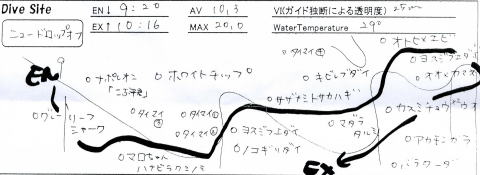 Dive Site
EN↓ 9:20
AV 10,3
VI(ガイド独断による透明度) 25m
ニュードロップオフ
EX↑ 10:16
MAX 20,0
WaterTemperature 29°
EN
EX
○ナポレオン
○ ホワイトチップ
タイマイ④
○キビレブダイ
オトヒメエビ
○ヨスジフエダイ
○オオメカマス
○グレー
リーフ
シャーク
○タイマイ
○タイマイ①
○タイマイ②
○サザナミトサカハギ
○ヨスジフエダイ
○ノコギリダイ
○マダラ
タルミ
○カスミチョウチョウウオ
○アカヂンカラ
○バラクーダ
○マロちゃん
ハナビラクマノミ